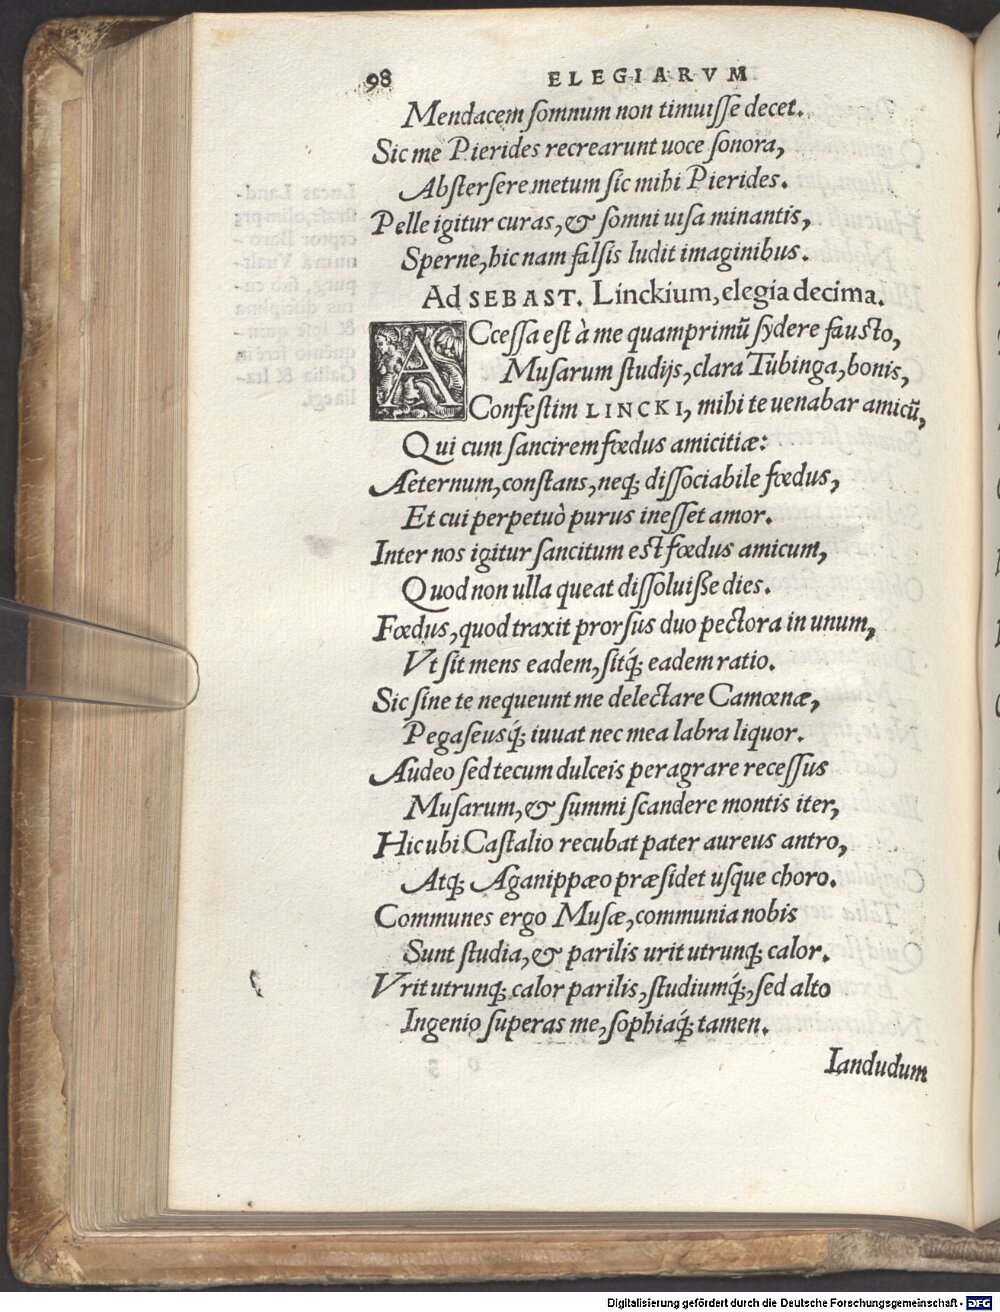 98 ELEGIARVM
Mendacem somnum non timuisse decet.
Sic me Pierides recrearunt uoce sonora,
Abstersere metum sic mihi Pierides.
Pelle igitur curas, & somni uisa minantis,
Sperne, hic nam falsis ludit imaginibus.
Ad SEBAST. Linckium, elegia decima.
ACcessa est à me quamprimũ sydere fausto,
Musarum studijs, clara Tubinga, bonis,
Confestim LINCKI, mihi te uenabar amicũ,
Qui cum sancirem fœdus amicitiæ:
Aeternum, constans, neq; dissociabile fœdus,
Et cui perpetuò purus inesset amor.
Inter nos igitur sancitum est fœdus amicum,
Quod non ulla queat dissoluisse dies.
Fœdus, quod traxit prorsus duo pectora in unum,
Vt sit mens eadem, sitq́; eadem ratio.
Sic sine te nequeunt me delectare Camœnæ,
Pegaseusq́; iuuat nec mea labra liquor.
Audeo sed tecum dulceis peragrare recessus
Musarum, & summi scandere montis iter,
Hic ubi Castalio recubat pater aureus antro,
Atq; Aganippæo præsidet usque choro.
Communes ergo Musæ, communia nobis
Sunt studia, & parilis urit utrunq; calor.
Vrit utrunq; calor parilis, studiumq́;, sed alto
Ingenio superas me, sophiaq́; tamen.
Iandudum
Digitalisierung gefördert durch die Deutsche Forschungsgemeinschaft - DFG